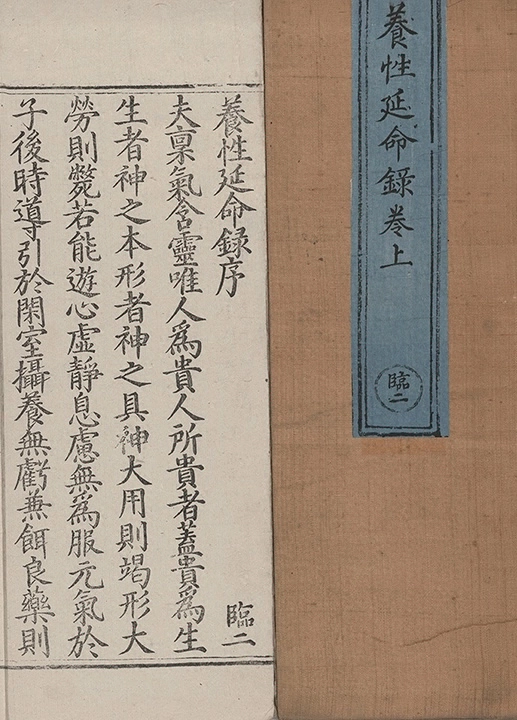 養性延命錄卷上
臨二
養性延命錄序
臨二
夫稟氣含靈唯人為貴人所貴者蓋貴為生
生者神之本形者神之具神大用則竭形大
勞則斃若能遊心虛靜息慮無為服元氣於
子後時導引於閑室攝養無虧兼餌良藥則